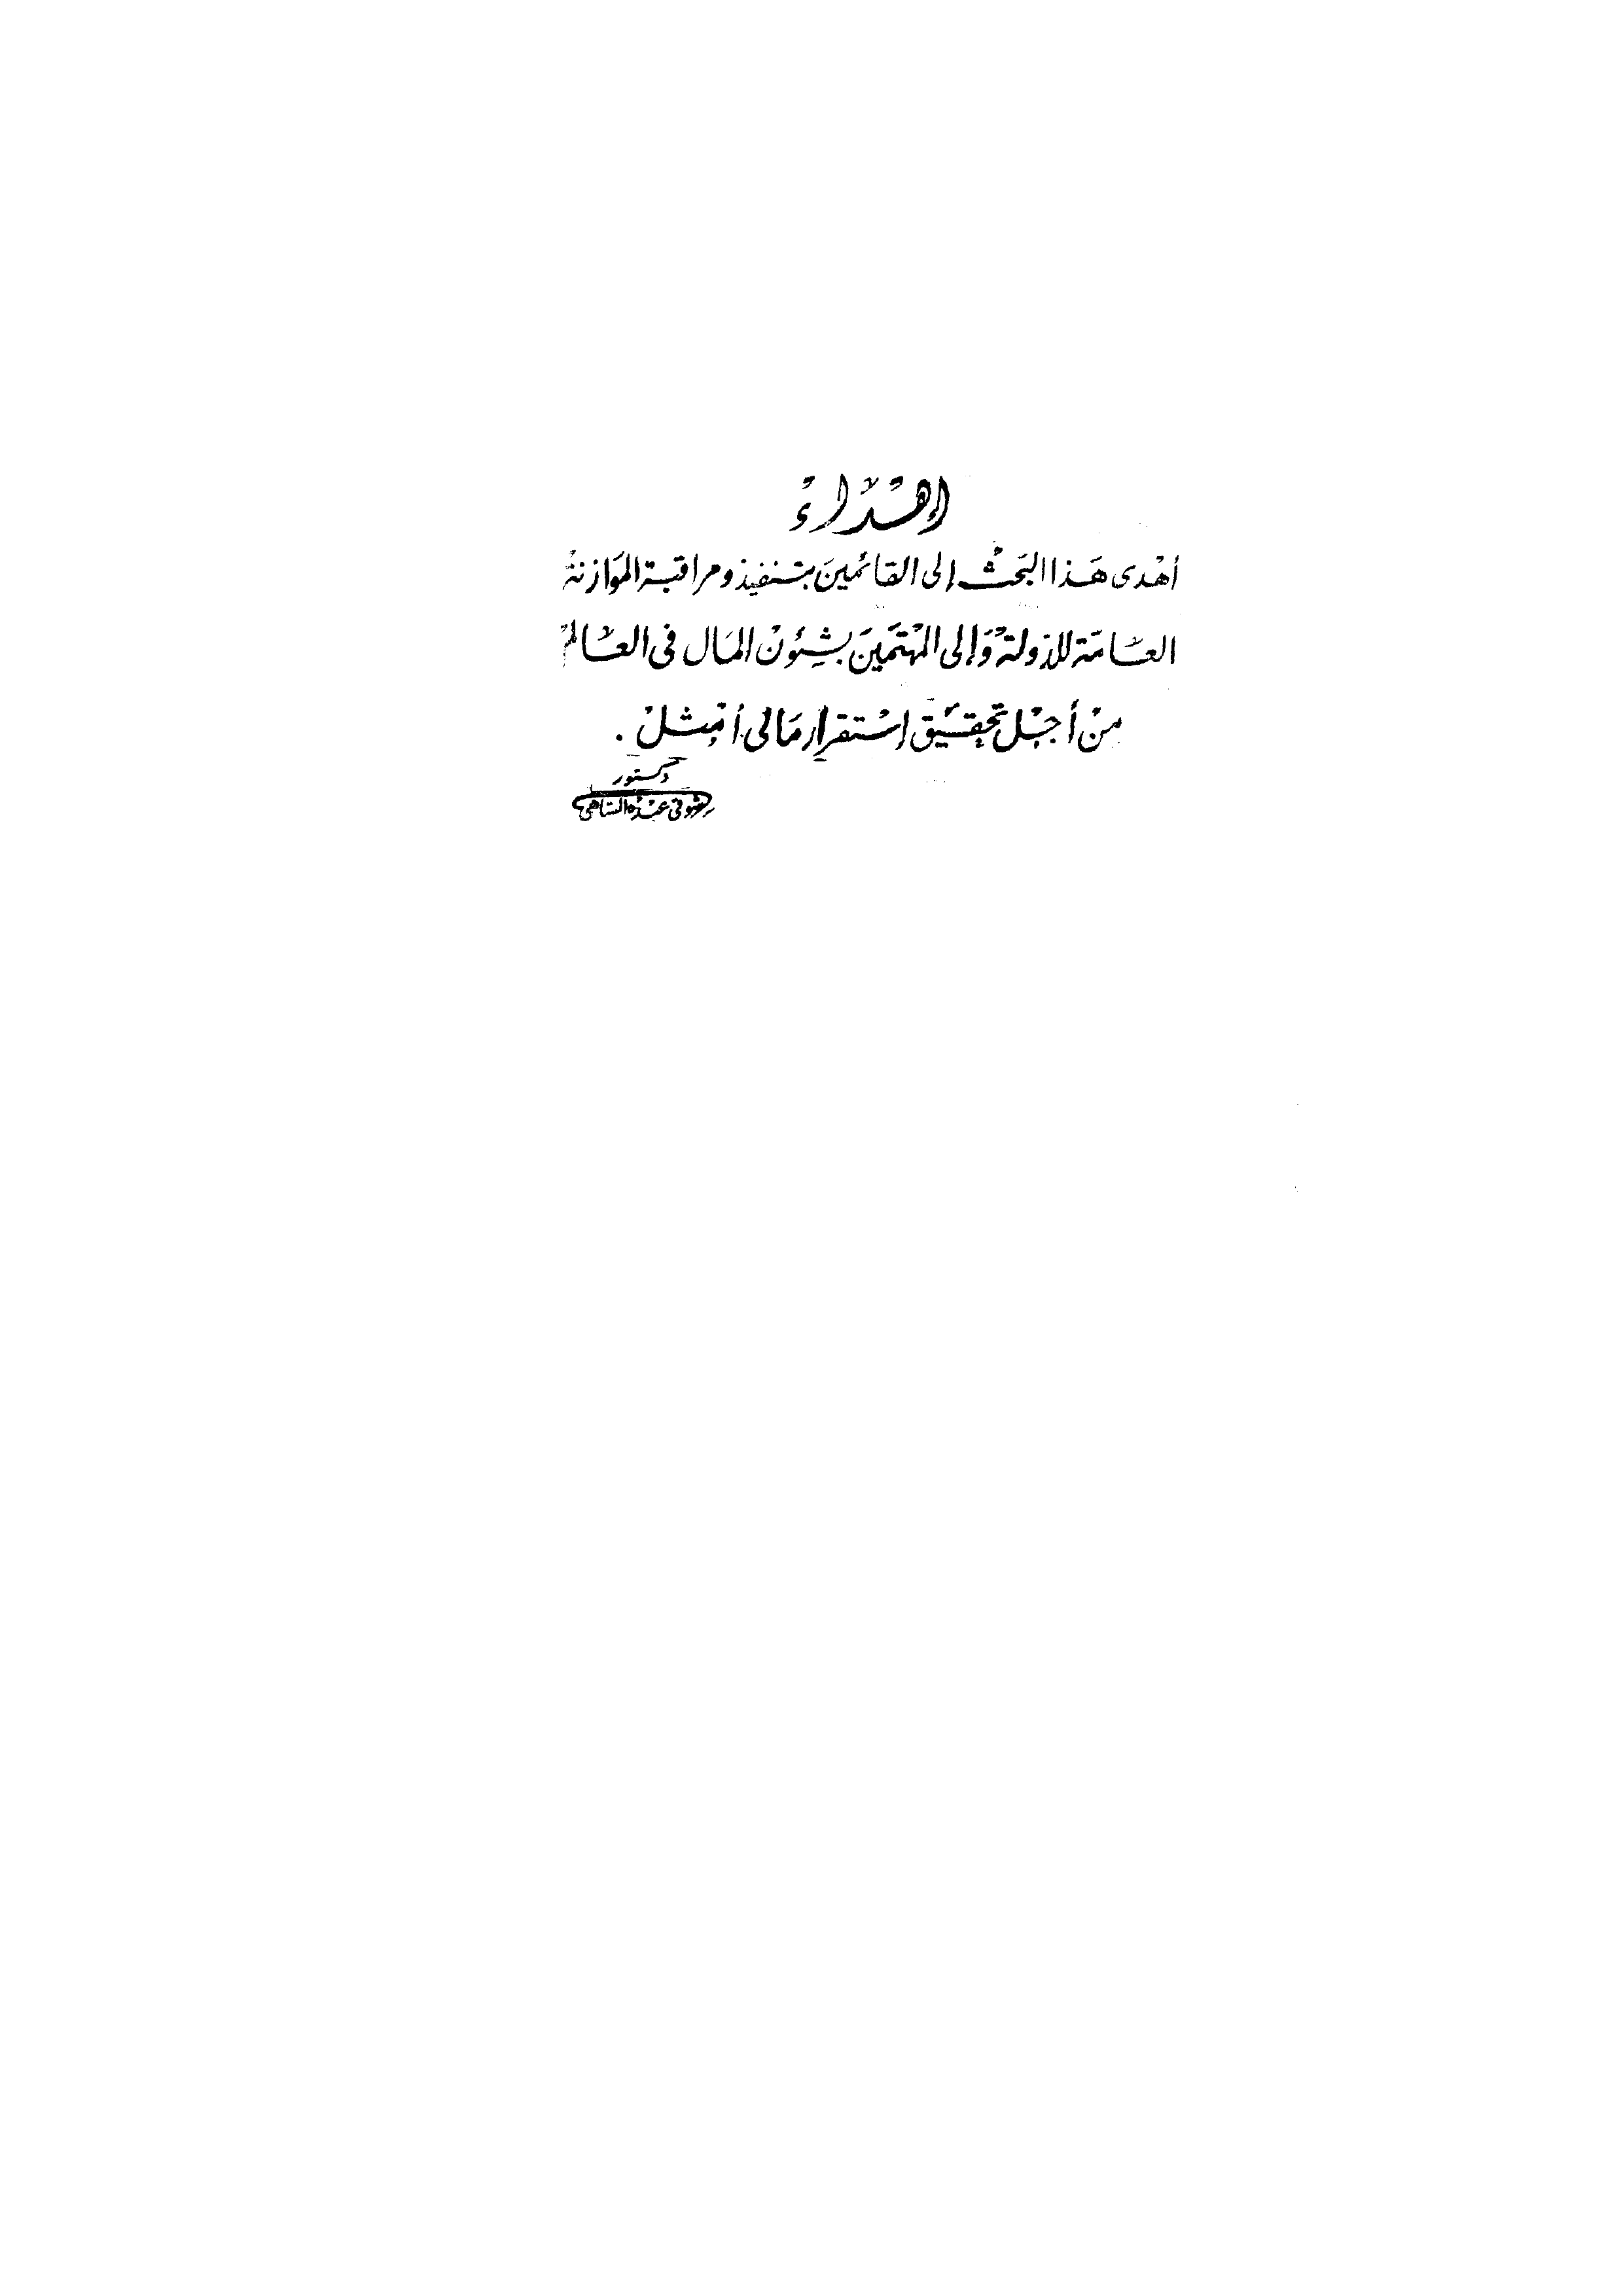 إهداء
أهدى هذا البحث إلى القائمين بتنفيذ ومراقبة الموازنة
العامة للدولة وإلى المهتمين بشئون المال فى العالم
من أجل تحقيق إستقرار مالى أمثل .
دكتور
شوقى عبده الساهى